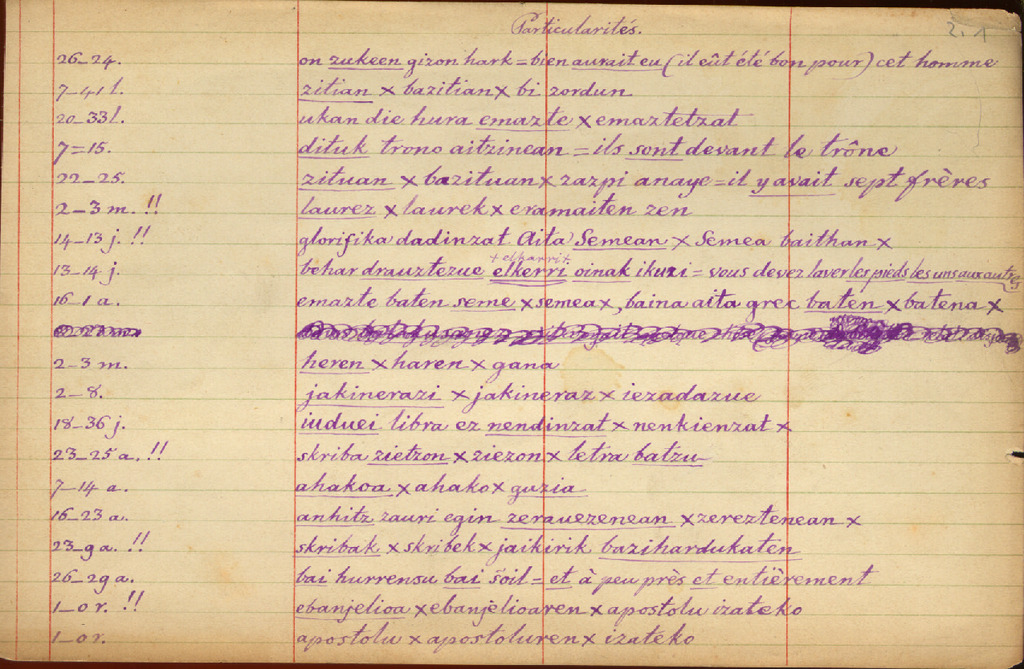 Particularités.
2.1
26-24. on zukeen gizon hark = bien aurait eu (il eût été bon pour) cet homme
7-41 l. zitian x bazitian x bi zordun
20-33 l. ukan die hura emazte x emaztetzat
7=15. dituk trono aitzinean = ils sont devant le trône
22-25. zituan x bazituan x zazpi anaye = il y avait sept frères
2-3 m. !! laurez x laurek x eramaiten zen
14-13 j. !! glorifika dadinzat Aita Semean x Semea baithan x
+ elkarri +
13-14 j. behar drauztezue elkerri oinak ikuzi = vous devez laver les pieds les uns aux autres
16-1 a. emazte baten seme x semea x, baina aita grec baten x batena x
2-3 m. heren x haren x gana
2-8. jakinerazi x jakineraz x iezadazue
18-36 j. iuduei libra ez nendinzat x nenkienzat x
23-25 a. !! skriba zietzon x ziezon x letra batzu
7-14 a. ahakoa x ahako x guzia
16-23 a. anhitz zauri egin zerauezenean x zereztenean x
23-9 a. !! skribak x skribek x jaikirik bazihardukaten
26-29 a. bai hurrensu bai soil = et à peu près et entièrement
1-0 r. !! ebanjelioa x ebanjelioaren x apostolu izateko
1-0 r. apostolu x apostoluren x izateko